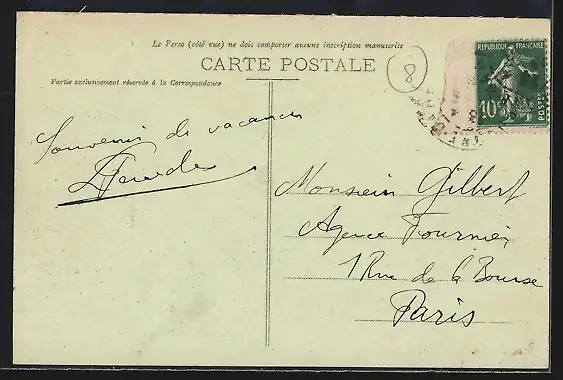 Le Verso (côté vue) ne doit comporter aucune inscription manuscrite
CARTE POSTALE
8
Partie exclusivement réservée à la Correspondance
REPUBLIQUE FRANÇAISE
10c
POSTES
Souvenir de vacances
Monsieur Gilbert
Agence Fournier
1 Rue de la Bourse
Paris